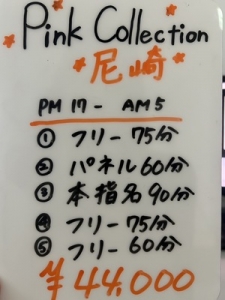 Pink Collection
尼崎
PM 17 - AM 5
① フリー 75分
② パネル 60分
③ 本指名 90分
④ フリー 75分
⑤ フリー 60分
¥44,000